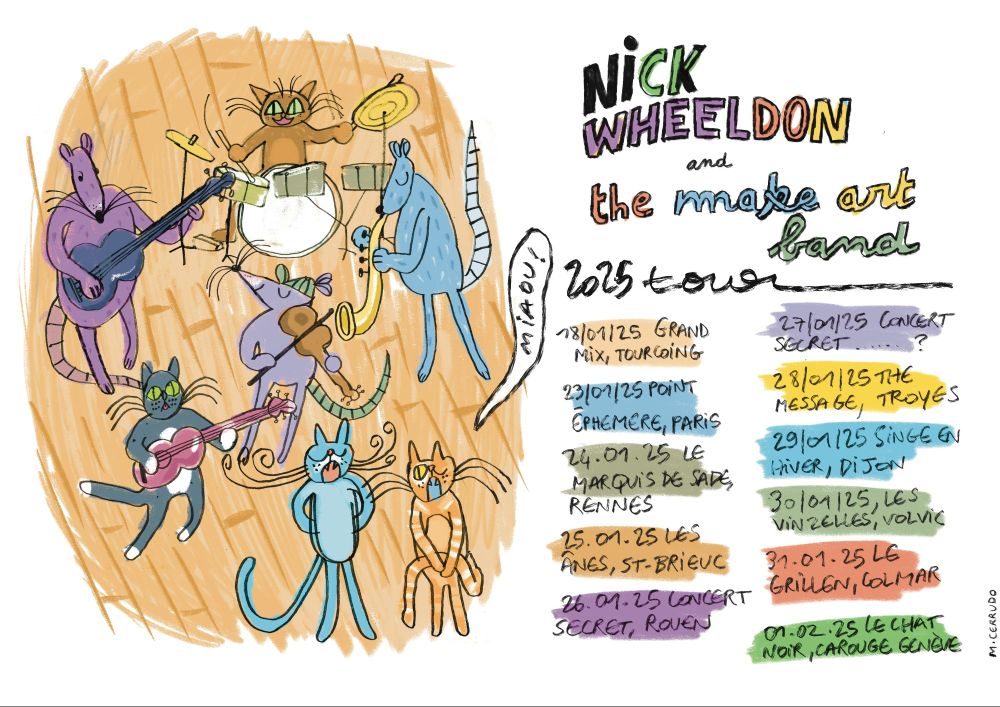 NiCK
WHEELDON
and
the make art
band
2025 tour
MIAOU!
18/01/25 GRAND
MIX, TOURCOING
23/01/25 POINT
ÉPHEMÈRE, PARIS
24.01.25 LE
MARQUIS DE SADE,
RENNES
25.01.25 LES
ÂNES, ST-BRIEUC
26.01.25 CONCERT
SECRET, ROUEN
27/01/25 CONCERT
SECRET ...... ?
28/01/25 THE
MESSAGE, TROYES
29/01/25 SINGE EN
HIVER, DIJON
30/01/25, LES
VINZELLES, VOLVIC
31.01.25 LE
GRILLEN, COLMAR
01.02.25 LE CHAT
NOIR, CAROUGE GENÈVE
M.CERRUDO